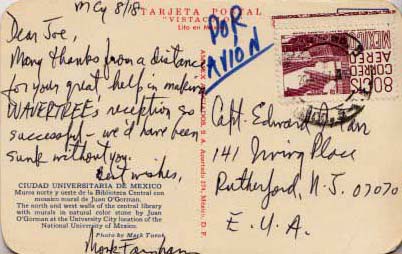 MCy 8/18
TARJETA POSTAL
"VISTACOLOR"
Lito en Mexico
POR
AVION
Dear Joe,
Many thanks from a distance
for your great help in making
WAVERTREE's reception so
successful – we'd have been
sunk without you.
Best wishes,
CIUDAD UNIVERSITARIA DE MEXICO
Muros norte y oeste de la Biblioteca Central con
mosaico mural de Juan O'Gorman.
The north and west walls of the central library
with murals in natural color stone by Juan
O'Gorman at the University City location of the
National University of Mexico.
Photo by Mark Turok
S. A. Apartado 274, Mexico, D. F.
80 CTS
CORREO
AEREO
MEXICO
Capt. Edward
141 Irving Place
Rutherford, N.J. 07070
E. U. A.